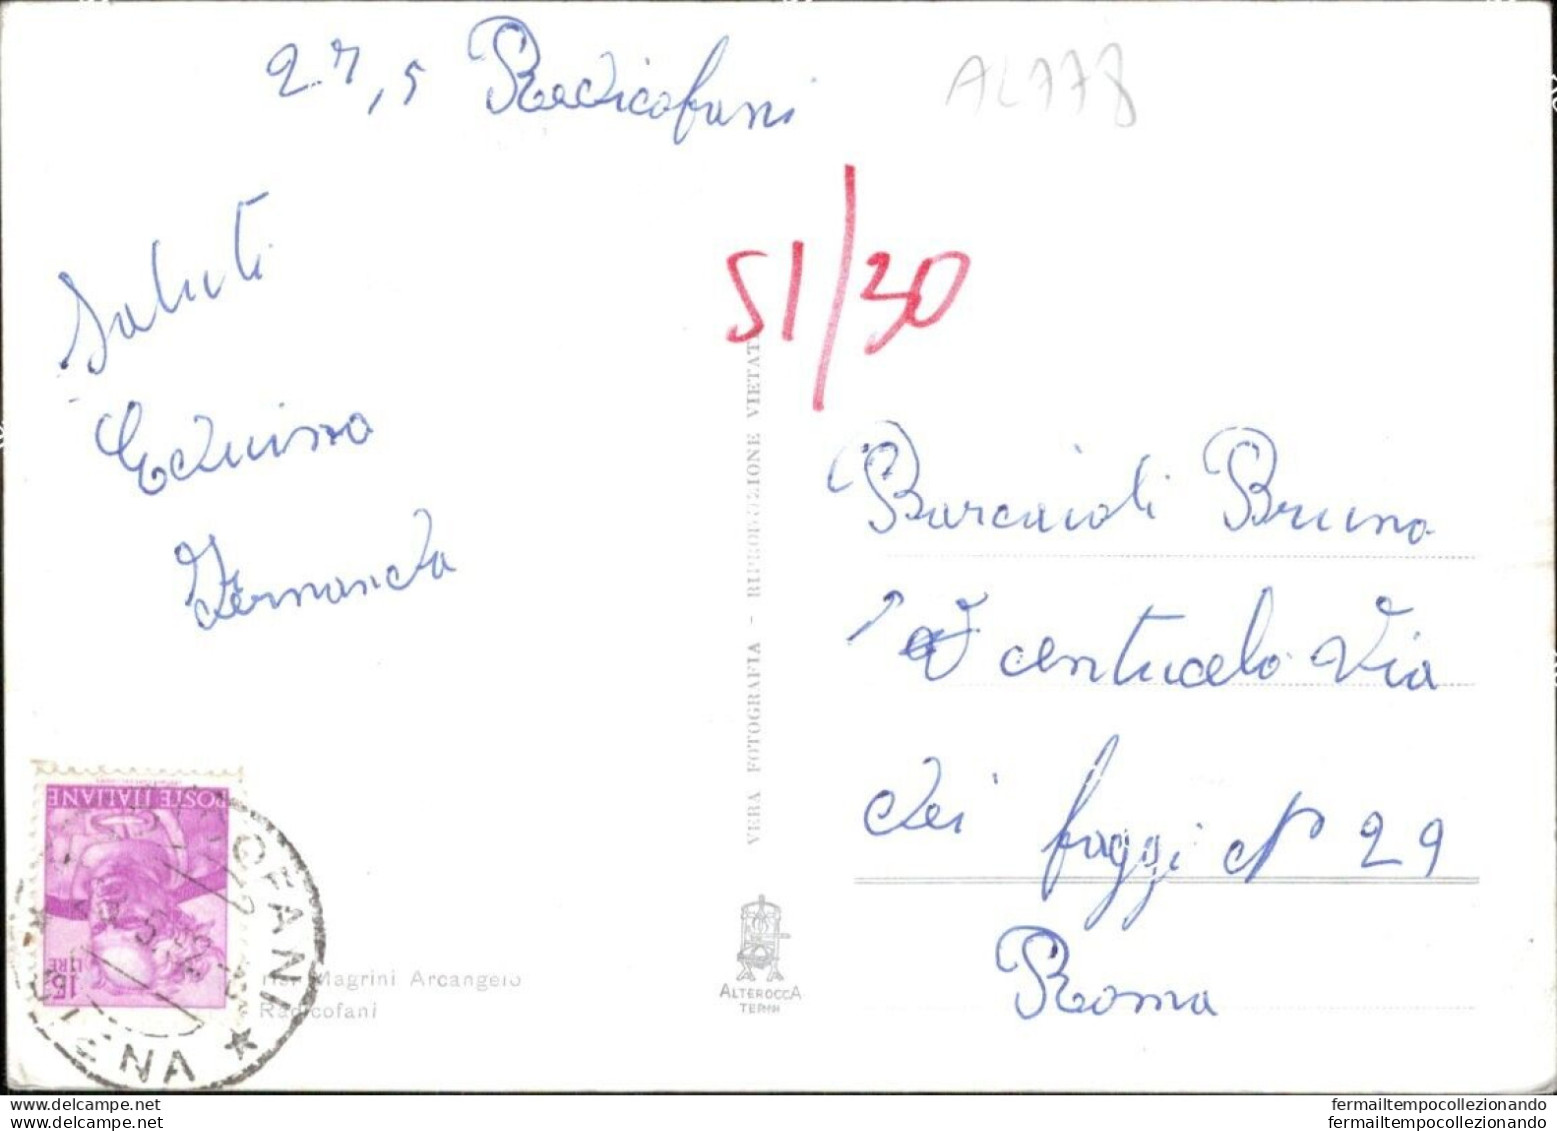 27,5 Radicofani
AL778
Saluti
51/30
Edvissa
Fernanda
Barcaioli Bruno
Centucelo Via
dei faggi N 29
Roma
VERA FOTOGRAFIA - RIPRODUZIONE VIETATA
POSTE ITALIANE
15 LIRE
RADICOFANI
SIENA
Ris. Magrini Arcangelo
Radicofani
ALTEROCCA
TERNI
www.delcampe.net
www.delcampe.net
fermailtempocollezionando
fermailtempocollezionando